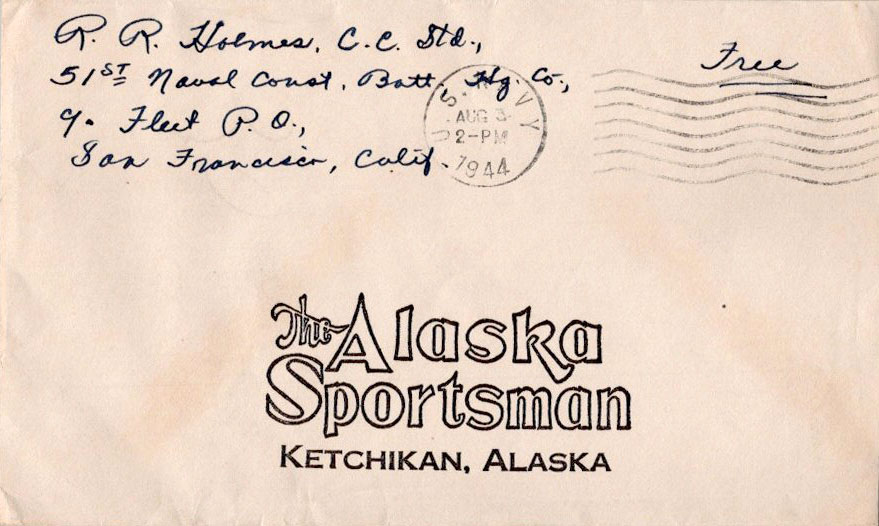 R. R. Holmes, C.C. Std.,
51ST Naval Const. Batt. Hq. Co.,
℅ Fleet P.O.,
San Francisco, Calif.
Free
U.S. NAVY
AUG 3
2-PM
1944
The Alaska
Sportsman
KETCHIKAN, ALASKA